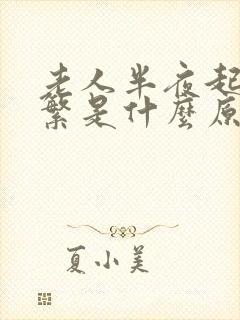 老人半夜起
繁是什麼原
夏小美